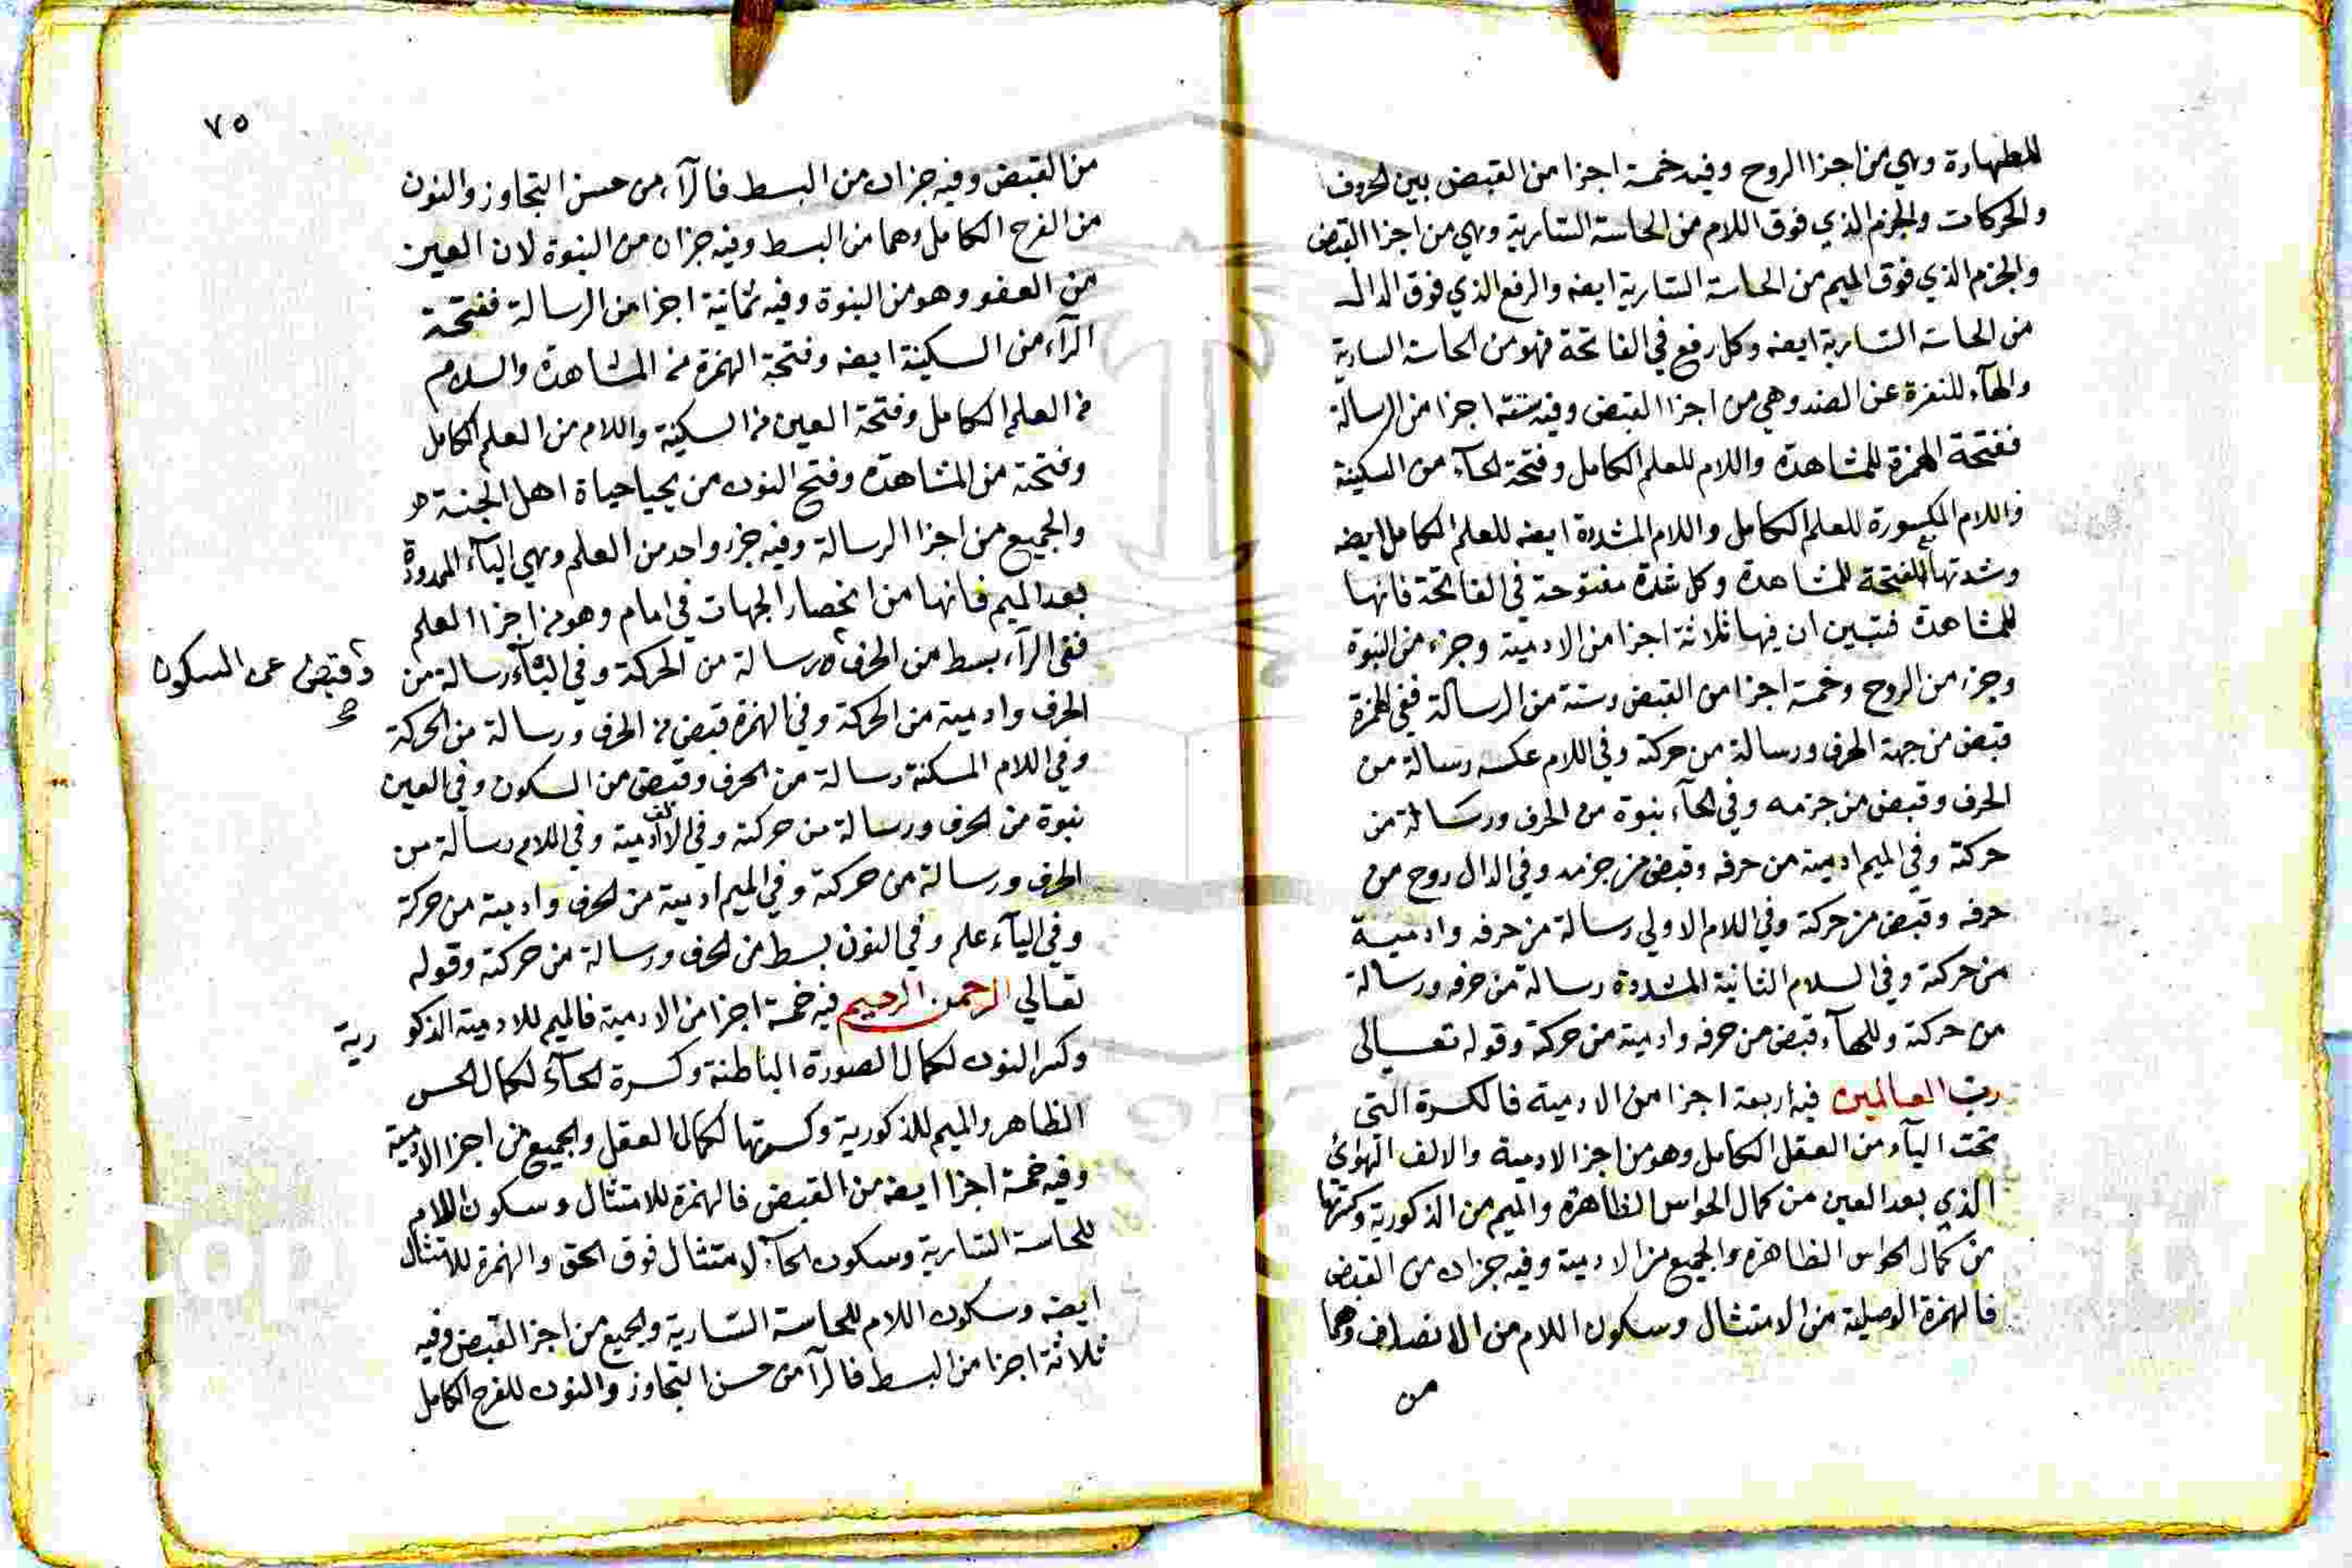 للطهارة وهي من اجزا الروح وفيه خمسة اجزا من القبض بين الحروف
والحركات والجزم الذي فوق اللام من الحاسة السارية وهي من اجزا القبض
والجزم الذي فوق الميم من الحاسة السارية ايضه والرفع الذي فوق الدال
من الحاسة السارية ايضه وكل رفع في الفاتحة فهو من الحاسة السارية
والهآء للنفرة عن الضد وهي من اجزا القبض وفيه ستة اجزا من الرسالة
ففتحة الهمزة للمشاهدة واللام للعلم الكامل وفتحة الحآء من السكينة
واللام المكسورة للعلم الكامل واللام المشددة ايضه للعلم الكامل ايضه
وشدتها بالفتحة للمشاهدة وكل شدة مفتوحة في الفاتحة فانها
للمشاهدة فتبين ان فيها ثلاثة اجزا من الادمية وجزء من النبوة
وجزء من الروح وخمسة اجزا من القبض وستة من الرسالة ففي الهمزة
قبض من جهة الحرف ورسالة من حركته وفي اللام عكسه رسالة من
الحرف وقبض من جزمه وفي الحآء نبوة من الحرف ورسالة من
حركته وفي الميم ادمية من حرفه وقبض من جزمه وفي الدال روح من
حرفه وقبض من حركته وفي اللام الاولي رسالة من حرفه وادمية
من حركته وفي اللام الثانية المشددة رسالة من حرفه ورسالة
من حركته وللهآء قبض من حرفه وادمية من حركته وقوله تعالى
رب العالمين فيه اربعة اجزا من الادمية فالكسرة التي
تحت البآء من العقل الكامل وهو من اجزا الادمية والالف الهوائي
الذي بعد العين من كمال الحواس الظاهرة والميم من الذكورية وكسرتها
من كمال الحواس الظاهرة والجميع من الادمية وفيه جزان من القبض
فالهمزة الوصلية من الامتثال وسكون اللام من الانصاف وهما
من
٧٥
من القبض وفيه جزان من البسط فالرآء من حسن التجاوز والنون
من الفرح الكامل وهما من البسط وفيه جزان من النبوة لان العين
من العفو وهو من النبوة وفيه ثمانية اجزا من الرسالة ففتحة
الرآء من السكينة ايضه وفتحة الهمزة من المشاهدة واللام
من العلم الكامل وفتحة العين من السكينة واللام من العلم الكامل
وفتحته من المشاهدة وفتح النون من يحيا حياة اهل الجنة
والجميع من اجزا الرسالة وفيه جزء واحد من العلم وهي اليآء الممدودة
بعد الميم فانها من انحصار الجهات في امام وهو من اجزا العلم
ففي الرآء بسط من الحرف ورسالة من الحركة وفي البآء رسالة من
وقبض عن السكون
صح
الحرف وادمية من الحركة وفي الهمزة قبض من الحرف ورسالة من الحركة
وفي اللام المسكنة رسالة من الحرف وقبض من السكون وفي العين
نبوة من الحرف ورسالة من حركته وفي الالف ادمية وفي اللام رسالة من
الحرف ورسالة من حركته وفي الميم ادمية من الحرف وادمية من حركته
وفي اليآء علم وفي النون بسط من الحرف ورسالة من حركته وقوله
تعالي الرحمن الرحيم فيه خمسة اجزا من الادمية فالميم للادمية الذكورية
وكسر النون لكمال الصورة الباطنة وكسرة الحآء لكمال الحس
الظاهر والميم للذكورية وكسرتها لكمال العقل والجميع من اجزا الادمية
وفيه خمسة اجزا ايضه من القبض فالهمزة للامتثال وسكون اللام
للحاسة السارية وسكون الحآء لامتثال فوق الحق والهمزة للامتثال
ايضه وسكون اللام للحاسة السارية والجميع من اجزا القبض وفيه
ثلاثة اجزا من البسط فالرآ من حسن التجاوز والنون للفرح الكامل